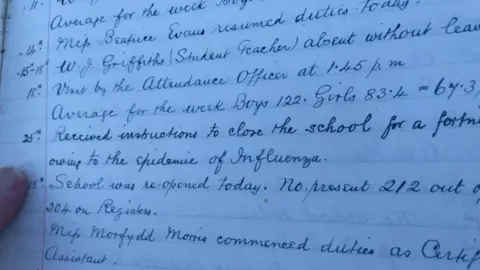 11. Average for the week Boys
14th Miss Beatrice Evans resumed duties today.
15th-18th W. J. Griffiths (Student Teacher) absent without leave
18th Visit by the Attendance Officer at 1.45 p.m
Average for the week Boys 122. Girls 83.4 = 67.3
25th Received instructions to close the school for a fortni
owing to the epidemic of Influenza.
School was re-opened today. No. present 212 out o
304 on Registers.
Miss Morfydd Morris commenced duties as Certif
Assistant.